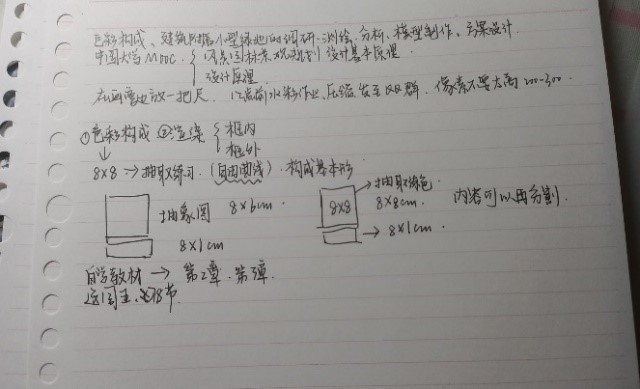 色彩构成、建筑附属小型绿地的调研、测绘、分析、模型制作、方案设计
中国大学MOOC. { 风景园林景观规划设计基本原理
设计原理
在画旁边放一把尺. 水彩作业, 压缩发至QQ群. 像素不要太高 200-300.
①色彩构成 ②渲染 { 框内
框外
8×8 → 抽取练习. (自由曲线). 构成基本形
抽象图 8×6cm
8×1cm
8×8
→ 抽取颜色
8×8cm
→ 8×1cm
内容可以再分割.
自学教材 → 第2章. 第3章.